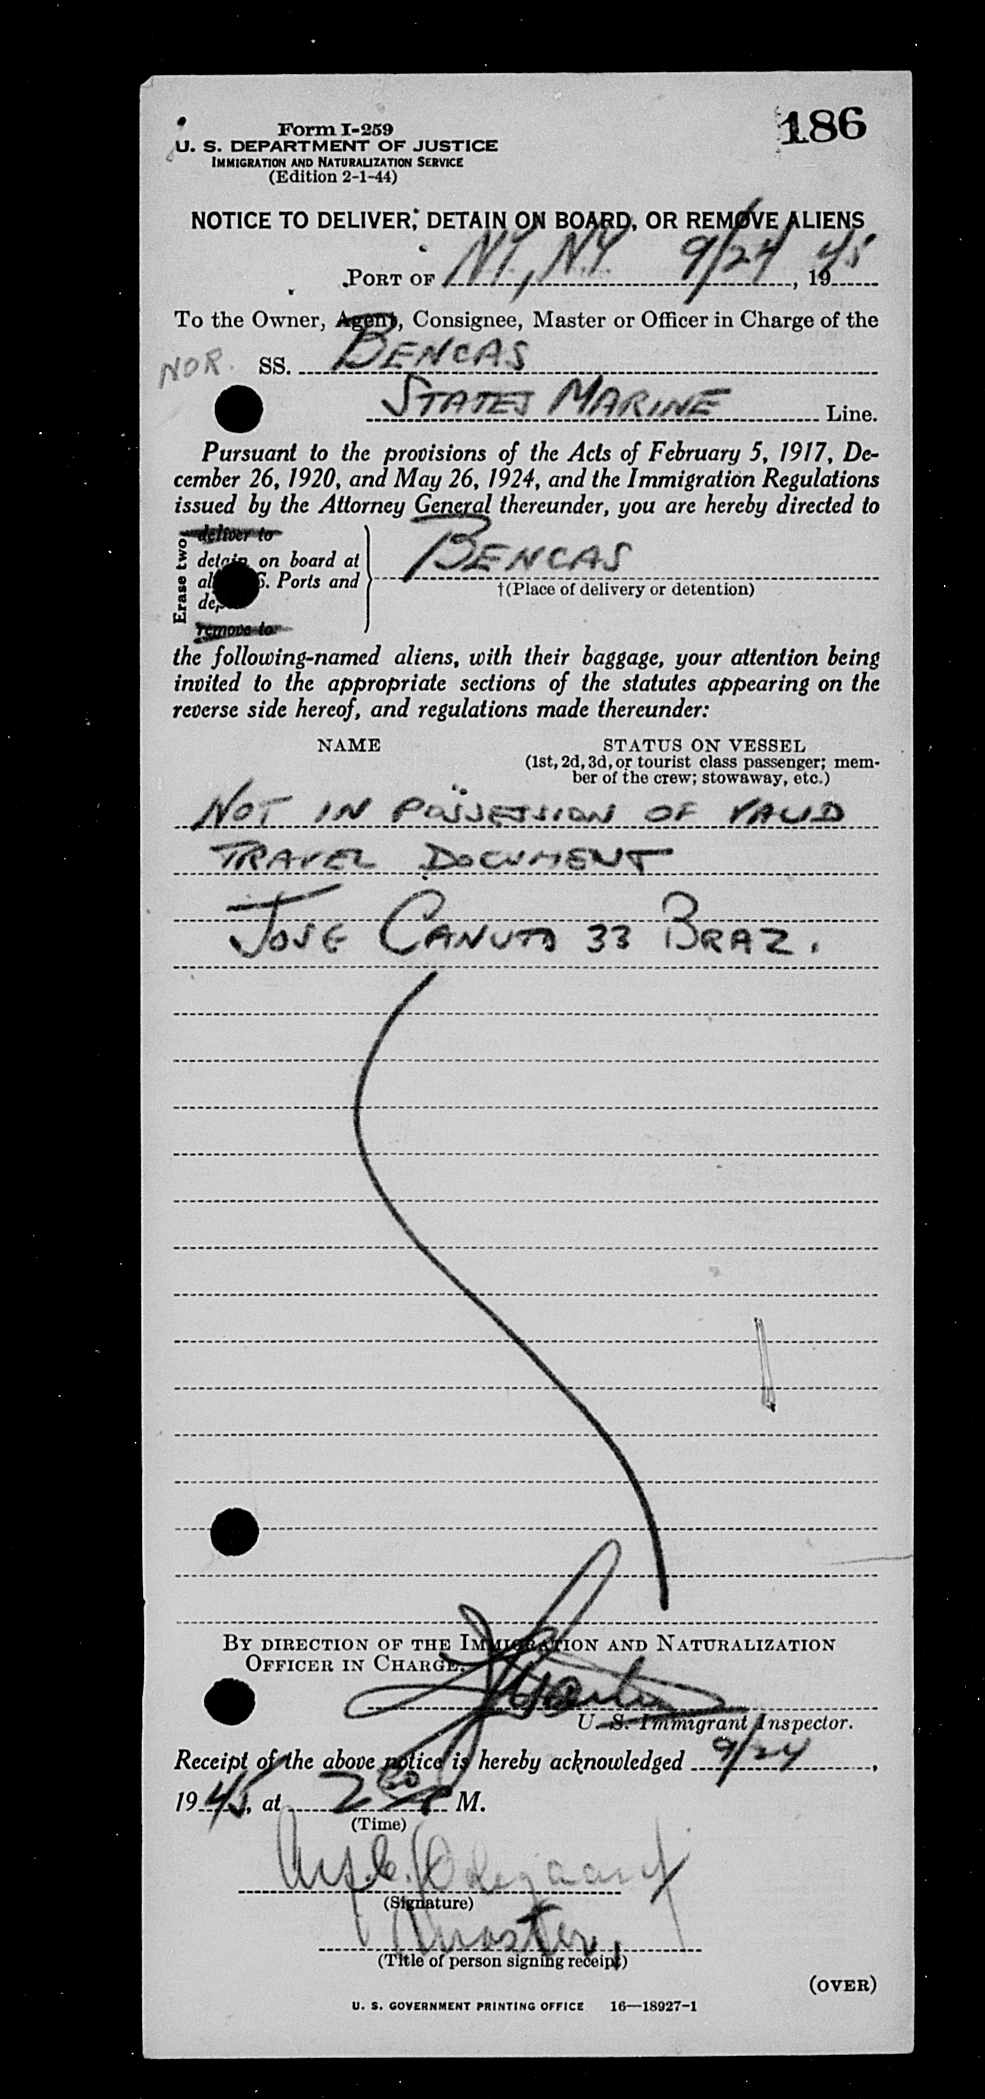 186
Form I-259
U. S. DEPARTMENT OF JUSTICE
IMMIGRATION AND NATURALIZATION SERVICE
(Edition 2-1-44)
NOTICE TO DELIVER, DETAIN ON BOARD, OR REMOVE ALIENS
PORT OF N.Y., N.Y. 9/24, 1945
To the Owner, Agent, Consignee, Master or Officer in Charge of the
NOR. SS. BENCAS
STATES MARINE Line.
Pursuant to the provisions of the Acts of February 5, 1917, De-
cember 26, 1920, and May 26, 1924, and the Immigration Regulations
issued by the Attorney General thereunder, you are hereby directed to
Erase two
deliver to
detain on board at
S. Ports and
BENCAS
†(Place of delivery or detention)
remove to
the following-named aliens, with their baggage, your attention being
invited to the appropriate sections of the statutes appearing on the
reverse side hereof, and regulations made thereunder:
NAME STATUS ON VESSEL
(1st, 2d, 3d, or tourist class passenger; mem-
ber of the crew; stowaway, etc.)
NOT IN POSSESSION OF VALID
TRAVEL DOCUMENT
JOSE CANUTO 33 BRAZ.
BY DIRECTION OF THE IMMIGRATION AND NATURALIZATION
OFFICER IN CHARGE.
U. S. Immigrant Inspector.
Receipt of the above notice is hereby acknowledged 9/24,
1945, at 2 30 P M.
(Time)
(Signature)
Master,
(Title of person signing receipt)
(OVER)
U. S. GOVERNMENT PRINTING OFFICE 16—18927-1